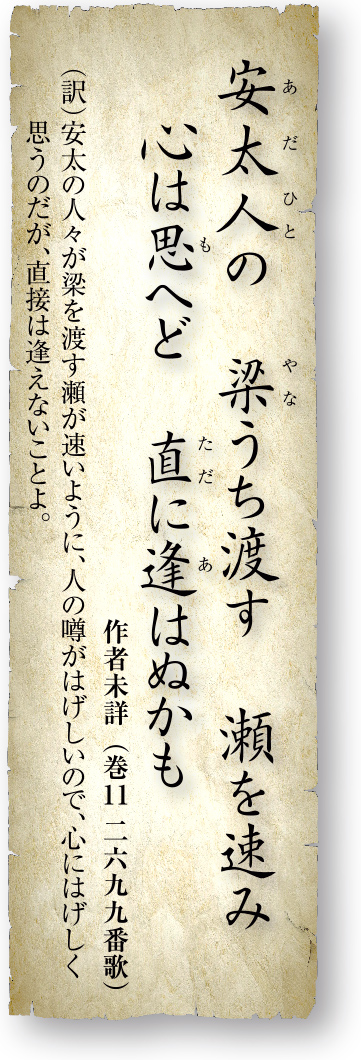 安太人の　梁うち渡す　瀬を速み
心は思へど　直に逢はぬかも
作者未詳（巻11 二六九九番歌）
（訳）安太の人々が梁を渡す瀬が速いように、人の噂がはげしいので、心にはげしく
思うのだが、直接は逢えないことよ。
あだひと
やな
も
ただ
あ